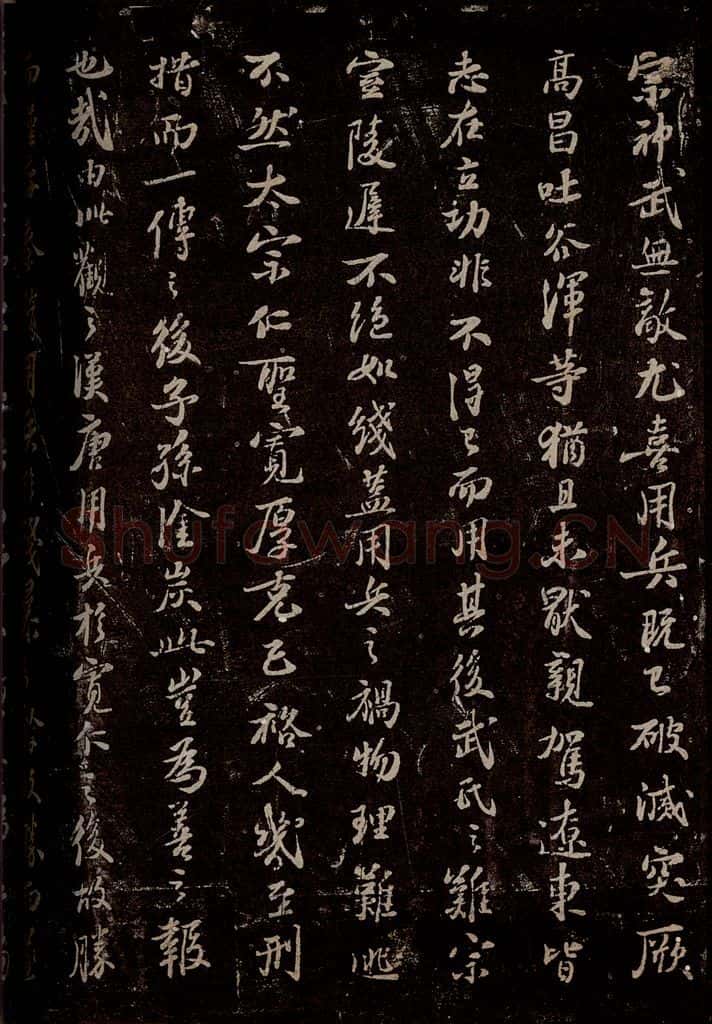 宗神武無敵尤喜用兵既已破滅突厥
高昌吐谷渾等猶且未厭親駕遼東皆
志在立功非不得已而用其後武氏之難宗
室陵遲不絕如綫蓋用兵之禍物理難逃
不然太宗仁聖寬厚克己裕人幾至刑
措而一傳之後子孫塗炭此豈為善之報
也哉由此觀之漢唐用兵於寬仁之後故勝
Shufawang.CN